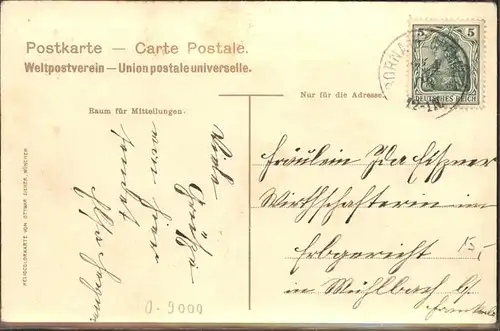 Postkarte — Carte Postale.
Weltpostverein — Union postale universelle.
Raum für Mitteilungen.
Nur für die Adresse.
5 5
DEUTSCHES REICH
BORNA
Viele
Grüße
von hier
sendet
Fräulein Ida
Wirthschafterin
im
Erbgericht
in Mühlbach b/
15,-
0-9000
PERGCOLORKARTE VON OTTMAR ZIEHER, MÜNCHEN